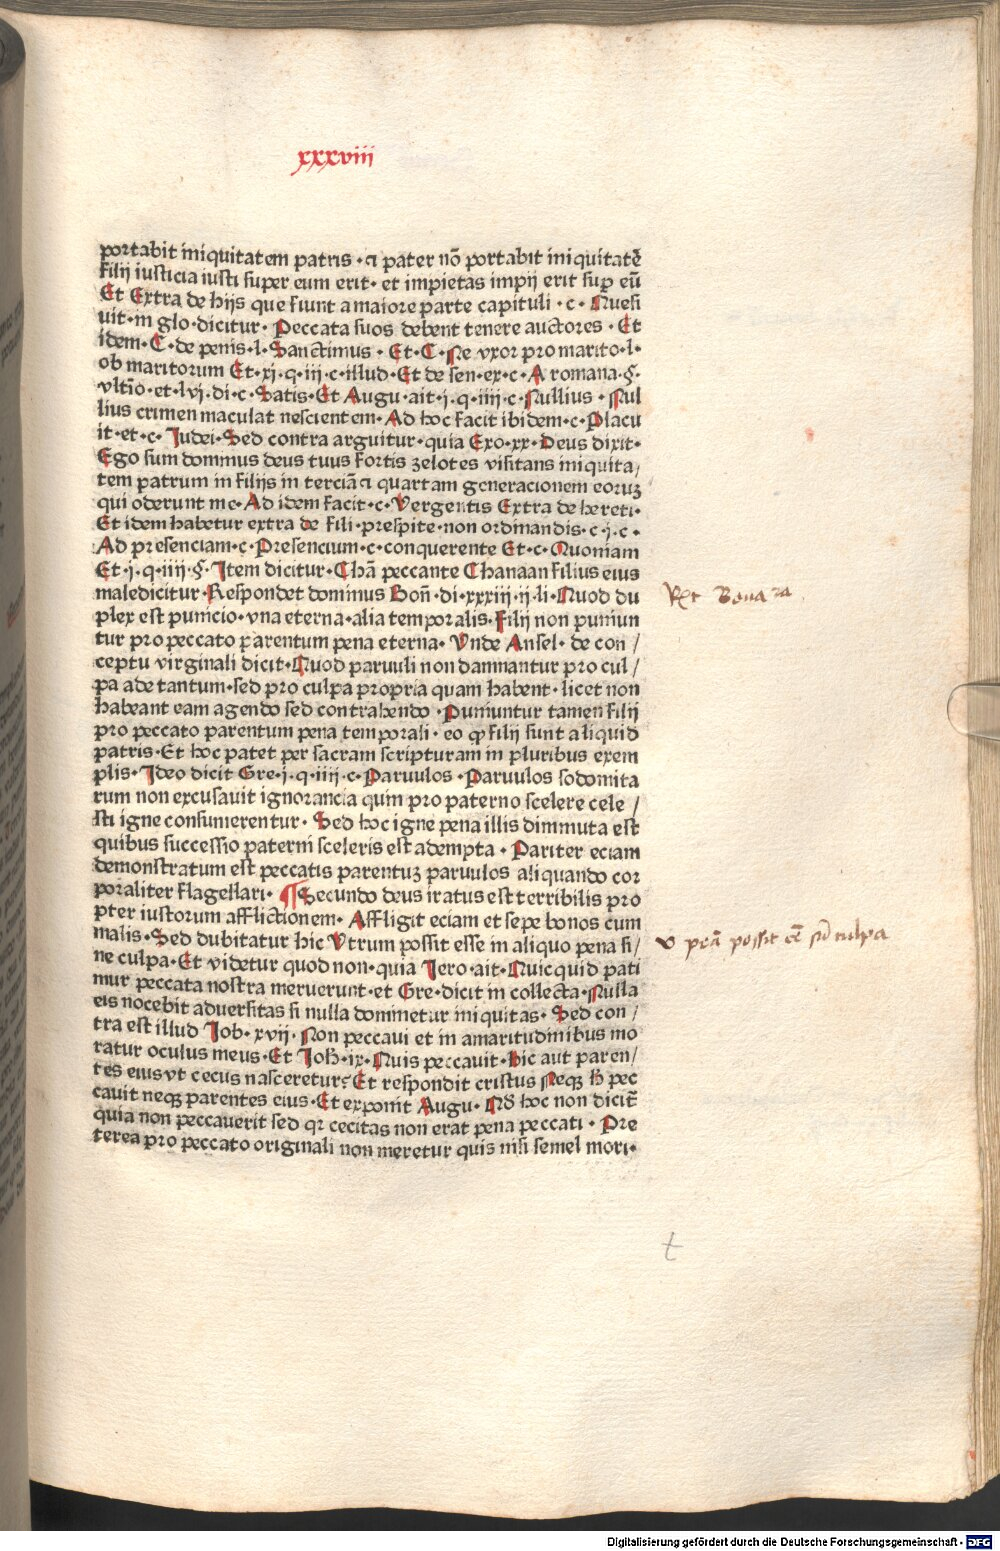 xxxviii
portabit iniquitatem patris · ⁊ pater nō portabit iniquitatē
filij iusticia iusti super eum erit · et impietas impij erit sup̱ eū
Et Extra de hijs que fiunt a maiore parte capituli · c · Quesi
uit · in glo · dicitur · Peccata suos debent tenere auctores · Et
idem · C · de penis · l · Sanctimus · Et · C · Ne vxor pro marito · l ·
ob maritorum Et · xj · q · iij · c · illud · Et de sen · ex · c · A romana · § ·
vltīo · et · lvj · di · c · Satis · Et Augu · ait · j · q · iiij · c · Nullius · Nul
lius crimen maculat nescientem · Ad hoc facit ibidem · c · Placu
it · et · c · Judei · Sed contra arguitur · quia Exo · xx · Deus dixit ·
Ego sum dominus deus tuus fortis zelotes visitans iniquita/
tem patrum in filijs in terciā ⁊ quartam generacionem eoruꝫ
qui oderunt me · Ad idem facit · c · Vergentis Extra de hereti ·
Et idem habetur extra de fili · prespite · non ordinandis · c · j · c ·
Ad presenciam · c · Presencium · c · conquerente Et · c · Quoniam
Et · j · q · iiij · § · Item dicitur · Chā peccante Chanaan filius eius
maledicitur · Respondet dominus Boñ · di · xxxiij · ij · li · Quod du
plex est punicio · vna eterna · alia temporalis · Filij non puniun
tur pro peccato parentum pena eterna · Vnde Ansel · de con /
ceptu virginali dicit · Quod paruuli non damnantur pro cul /
pa ade tantum · sed pro culpa propria quam habent · licet non
habeant eam agendo sed contrahendo · Puniuntur tamen filij
pro peccato parentum pena temporali · eo ꝙ filij sunt aliquid
patris · Et hoc patet per sacram scripturam in pluribus exem
plis · Ideo dicit Gre · j · q · iiij · c · Paruulos · Paruulos sodomita
rum non excusauit ignorancia quin pro paterno scelere cele /
sti igne consumerentur · Sed hoc igne pena illis diminuta est
quibus successio paterni sceleris est adempta · Pariter eciam
demonstratum est peccatis parentuꝫ paruulos aliquando cor
poraliter flagellari · ¶ Secundo deus iratus est terribilis pro
pter iustorum afflictionem · Affligit eciam et sepe bonos cum
malis · Sed dubitatur hic Vtrum possit esse in aliquo pena si /
ne culpa · Et videtur quod non · quia Jero · ait · Quicquid pati
mur peccata nostra meruerunt · et Gre · dicit in collecta · Nulla
eis nocebit aduersitas si nulla dominetur iniquitas · Sed con /
tra est illud Job · xvij · Non peccaui et in amaritudinibus mo
ratur oculus meus · Et Joħ · ix · Quis peccauit · hic aut paren/
tes eius vt cecus nasceretur? Et respondit cristus Neqꝫ ħ pec
cauit neqꝫ parentes eius · Et exponit Augu · Nō hoc non dicit̄
quia non peccauerit sed qꝛ cecitas non erat pena peccati · Pre
terea pro peccato originali non meretur quis nisi semel mori ·
Bona
possit culpa
t
Digitalisierung gefördert durch die Deutsche Forschungsgemeinschaft - DFG